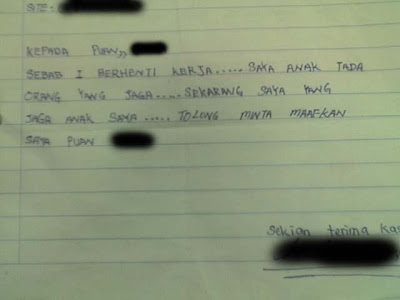 SITE:
KEPADA PUAN,,
SEBAB I BERHENTI KERJA..... SAYA ANAK TADA
ORANG YANG JAGA..... SEKARANG SAYA YANG
JAGA ANAK SAYA ..... TOLONG MINTA MAAFKAN
SAYA PUAN
Sekian terima kas